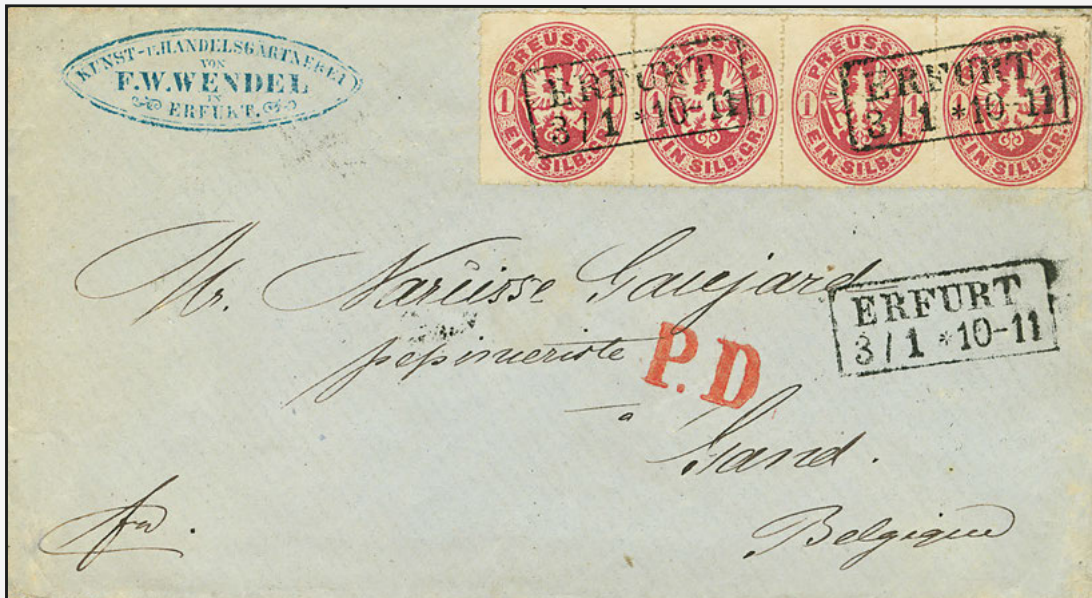 KUNST-u.HANDELSGÄRTNEREI
VON
F.W.WENDEL
IN
ERFURT.
PREUSSEN
1 1
EIN SILB.GR.
PREUSSEN
1 1
EIN SILB.GR.
PREUSSEN
1 1
EIN SILB.GR.
PREUSSEN
1
EIN SILB.GR.
ERFURT
3/1 *10-11
ERFURT
3/1 *10-11
Mr. Narcisse Gaujard
pepinieriste
à
P.D
ERFURT
3/1 *10-11
Gand.
fco.
Belgique